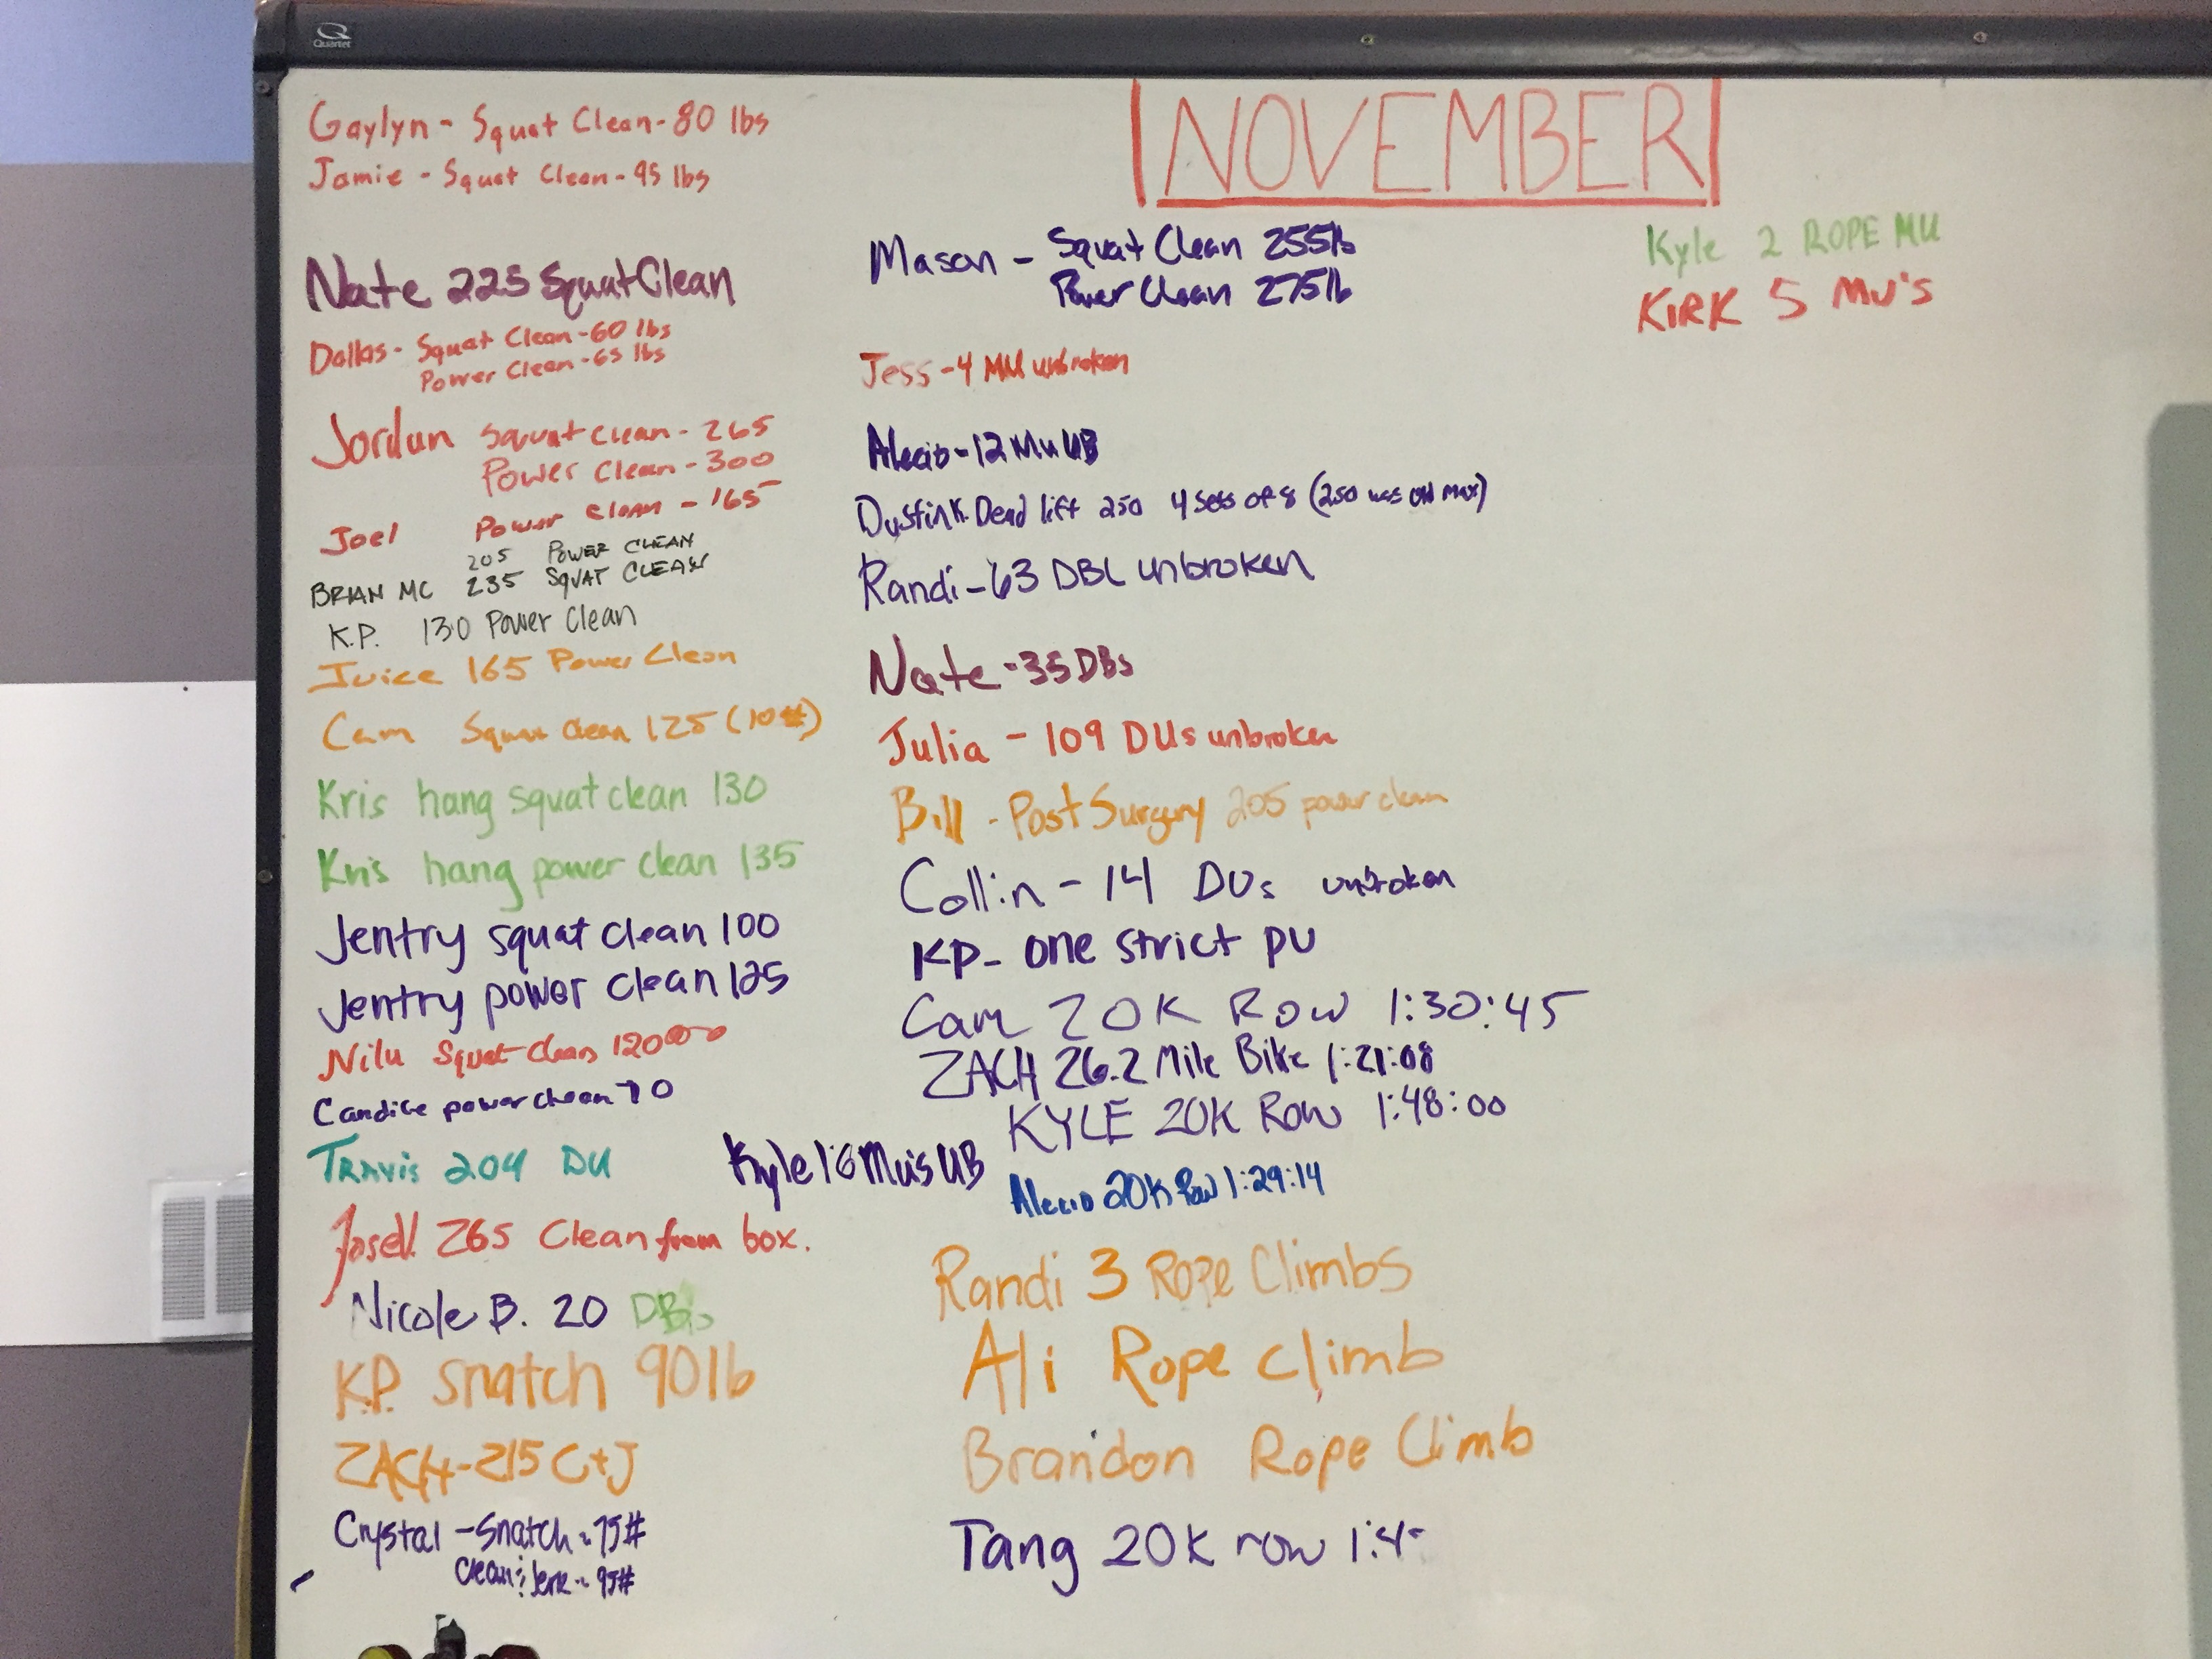 Quartet
NOVEMBER
Gaylyn - Squat Clean - 80 lbs
Jamie - Squat Clean - 95 lbs
Nate 225 Squat Clean
Dallas - Squat Clean - 60 lbs
Power Clean - 65 lbs
Jordan Squat Clean - 265
Power Clean - 300
Joel Power Clean - 165
205 POWER CLEAN
BRIAN MC 235 SQUAT CLEAN
K.P. 130 Power Clean
Juice 165 Power Clean
Cam Squat Clean 125 (10#)
Kris hang squat clean 130
Kris hang power clean 135
Jentry squat clean 100
Jentry power clean 125
Nilu Squat Clean 120
Candice power clean 70
Travis 204 DU
265 Clean from box.
Nicole B. 20 DB's
K.P. snatch 90lb
ZACH - 215 C+J
Crystal - Snatch - 75#
Clean & Jerk - 95#
Mason - Squat Clean 255lb
Power Clean 275lb
Jess - 4 MU unbroken
Alecio - 12 MU UB
Dustin K. Dead lift 250 4 sets of 8 (250 was old max)
Randi - 63 DBL unbroken
Nate - 35 DBs
Julia - 109 DUs unbroken
Bill - Post Surgery 205 power clean
Collin - 14 DUs unbroken
KP - one strict PU
Cam 20K Row 1:30:45
ZACH 26.2 Mile Bike 1:21:08
KYLE 20K Row 1:48:00
Kyle MU's UB
Alecio 20K Row 1:29:14
Randi 3 Rope Climbs
Ali Rope climb
Brandon Rope Climb
Tang 20K row
Kyle 2 ROPE MU
KIRK 5 MU'S